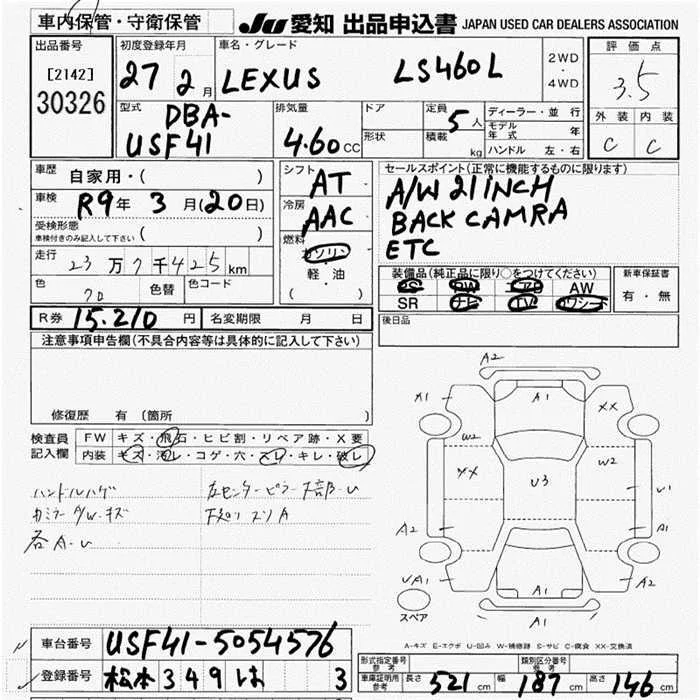 車内保管・守衛保管 JU 愛知 出品申込書 JAPAN USED CAR DEALERS ASSOCIATION
出品番号 [2142] 30326
初度登録年月 27年 2月
車名・グレード LEXUS LS460L 2WD・4WD
評価点 3.5
外装 C 内装 C
型式 DBA-USF41
排気量 4.60 CC
ドア 形状
定員 5人 積載 kg
ディーラー・並行
モデル年式 年
ハンドル 左・右
車歴 自家用・( )
車検 R9年 3月(20日)
受検形態 車検付きのみ記入して下さい ( )
走行 23万7千425km
色 色替 色コード
シフト AT
冷房 AAC
燃料 ガソリン
軽・油
( )
セールスポイント(正常に機能するものに限ります)
A/W 21 INCH
BACK CAMRA
ETC
装備品(純正品に限り○をつけてください) 新車保証書
PS PW エアB AW 有・無
SR ナビ TV カワシート
後日品
R券 15.210円 名変期限 月 日
注意事項申告欄(不具合内容等は具体的に記入して下さい)
修復歴 有 (箇所 )
検査員記入欄 FW キズ・飛石・ヒビ割・リペア跡・X要
内装 キズ・汚レ・コゲ・穴・スレ・キレ・破レ
ハンドルハゲ 左センターピラー下部-U
カミラー A/W-キズ 下廻りスリA
各A-U
A2
A1 A1 XX
W2 XX U3 W2 U1
A2 A1
UA1 A1 A2
A1
スペア
A-キズ E-エクボ U-凹み W-補修跡 S-サビ C-腐食 XX-交換済
車台番号 USF41-5054576
登録番号 松本 349 は 3
形式指定番号 参考 類別区分番号 参考
車庫証明用参考 長さ 521cm 幅 187cm 高さ 146cm